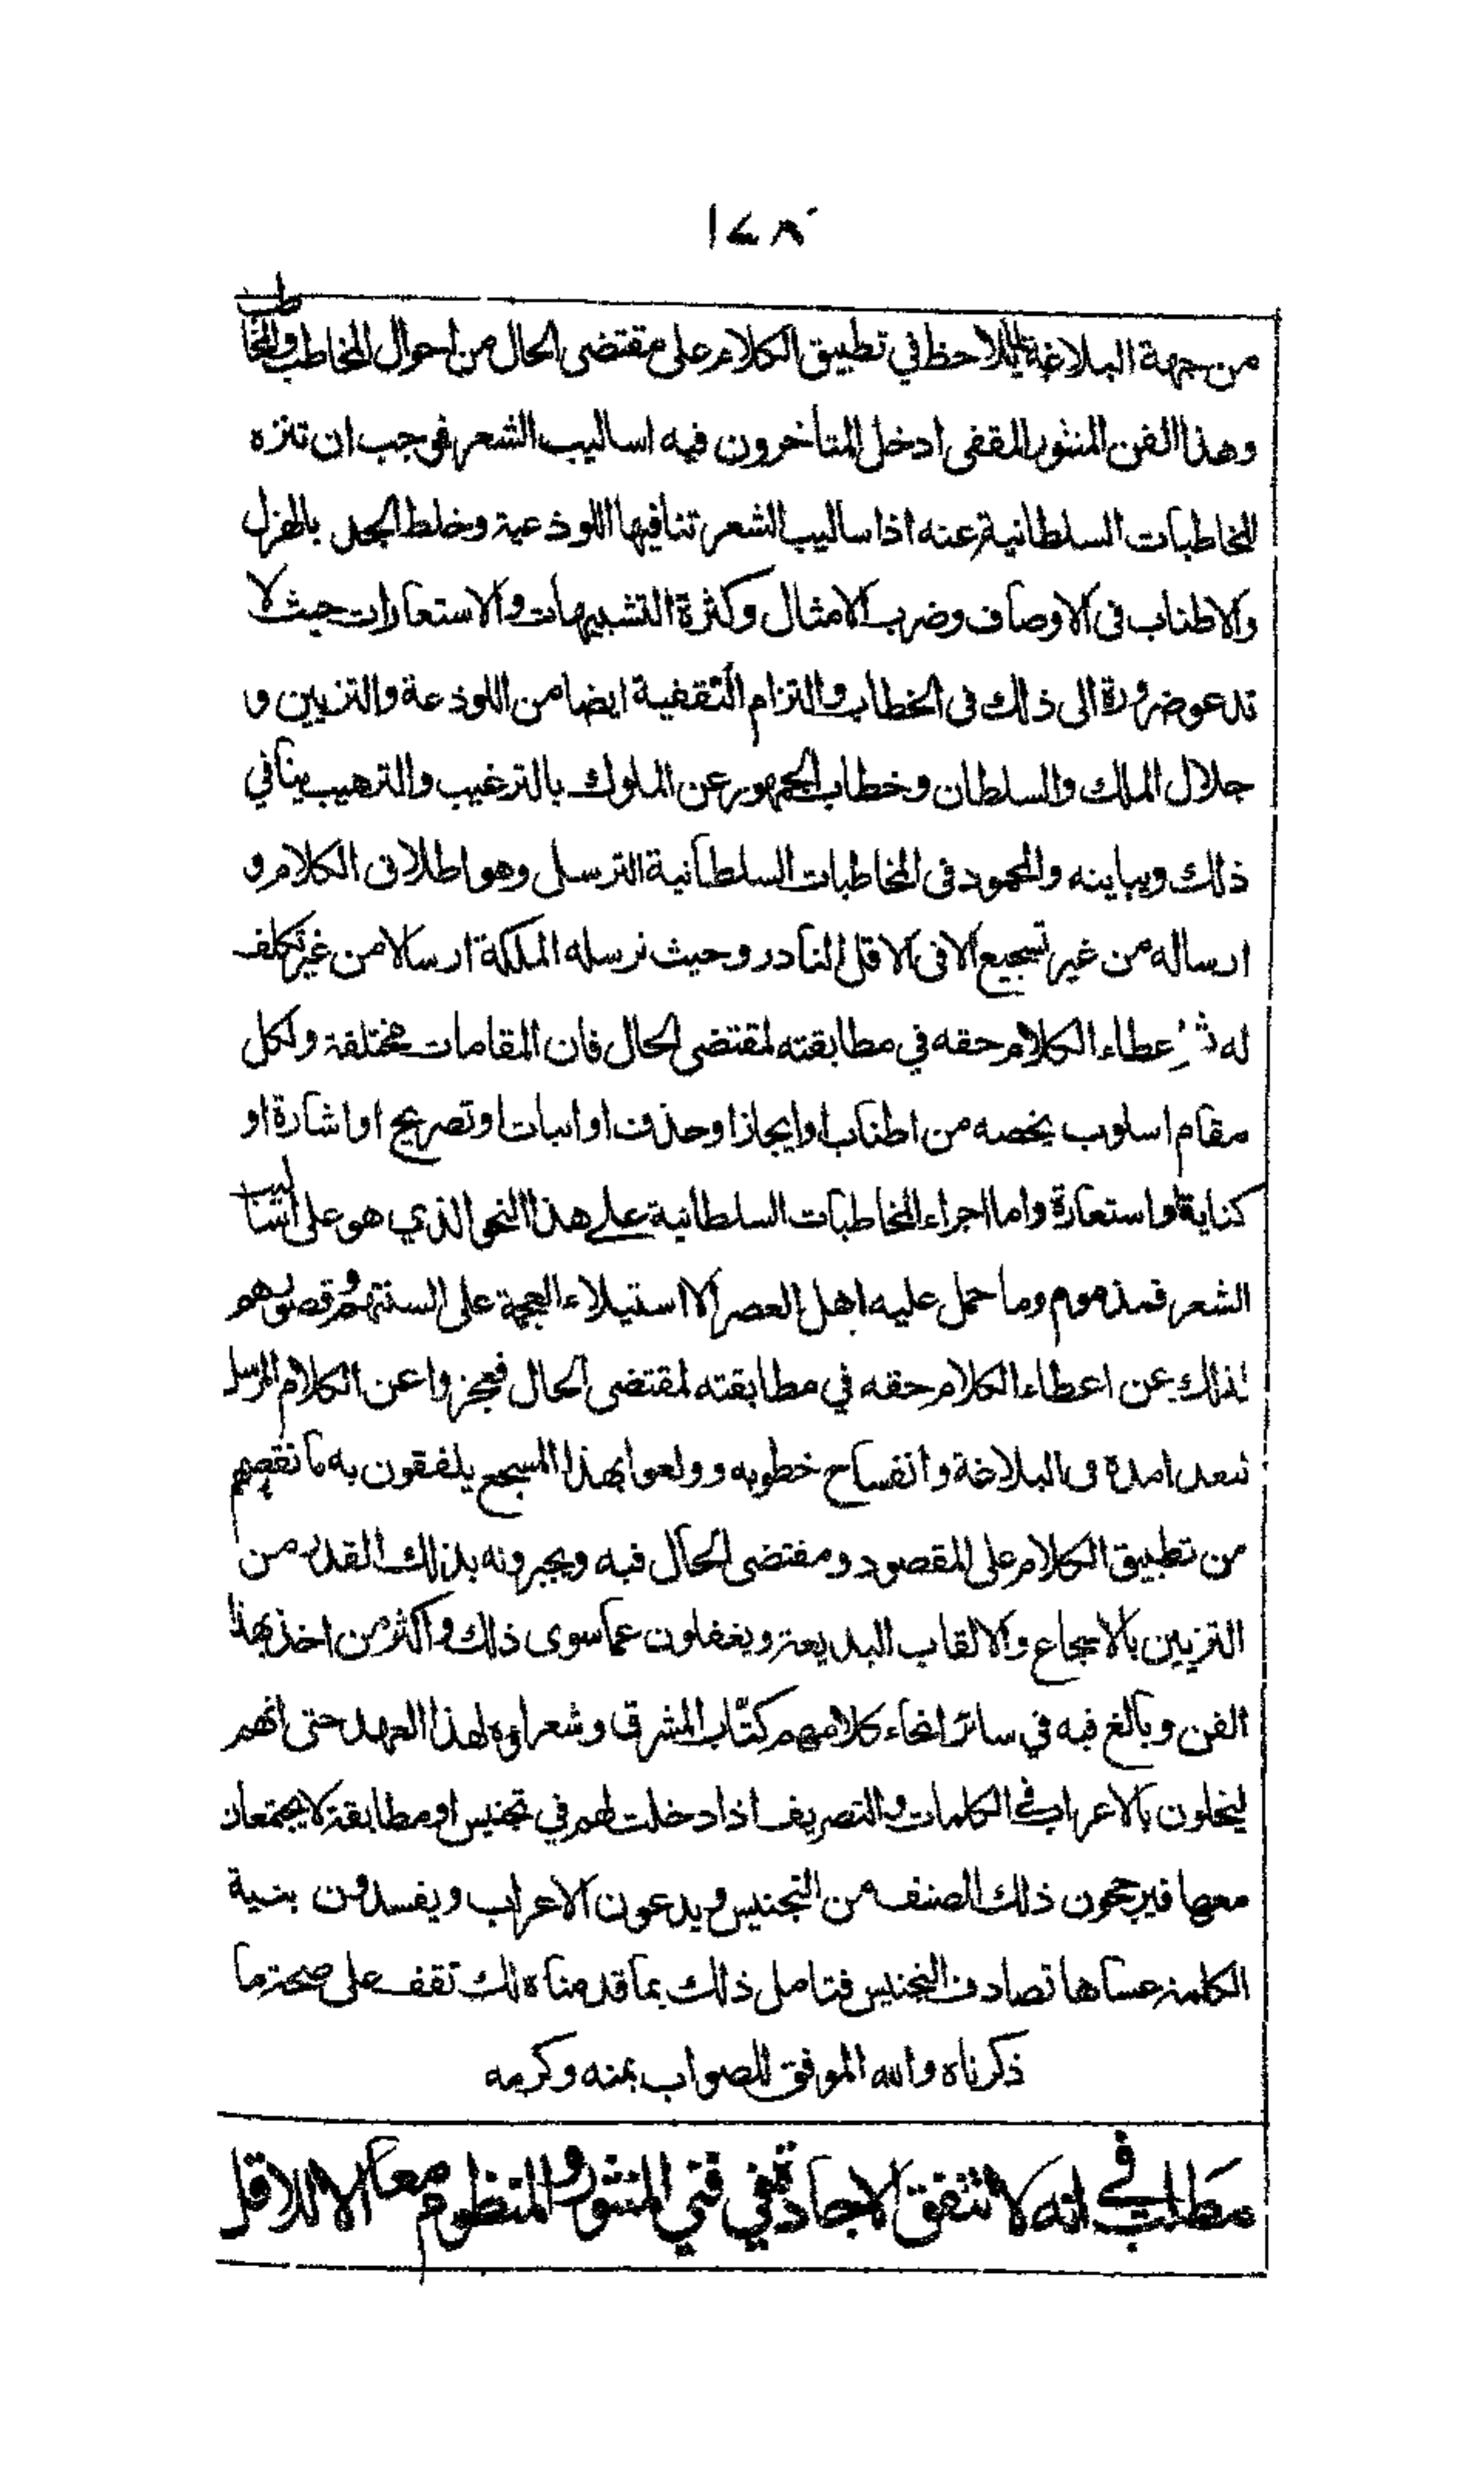 ١٤٨
من جهة البلاغة لما يلاحظ في تطبيق الكلام على مقتضى الحال من احوال المخاطب والمخاطب
وهذا الفن المنثور المقفى ادخل المتأخرون فيه اساليب الشعر فوجب ان تنزه
المخاطبات السلطانية عنه اذا ساليب الشعر تنافيها اللوذعية وخلط الجد بالهزل
والاطناب في الاوصاف وضرب الامثال وكثرة التشبيهات والاستعارات حيث لا
تدعو ضرورة الى ذلك في الخطاب والتزام التقفية ايضا من اللوذعة والتزيين و
جلال الملك والسلطان وخطاب الجمهور عن الملوك بالترغيب والترهيب ينافي
ذلك ويباينه والمحمود في المخاطبات السلطانية الترسل وهو اطلاق الكلام و
ارساله من غير تسجيع الا في الاقل النادر وحيث نرسله الملكة ارسالا من غير تكلف
له ثم اعطاء الكلام حقه في مطابقته لمقتضى الحال فان المقامات مختلفة ولكل
مقام اسلوب يخصه من اطناب او ايجاز او حذف او اثبات او تصريح او اشارة او
كناية او استعارة واما اجراء المخاطبات السلطانية على هذا النحو الذي هو على اساليب
الشعر فمذموم وما حمل عليه اهل العصر الا استيلاء العجمة على السنتهم وقصورهم
لذلك عن اعطاء الكلام حقه في مطابقته لمقتضى الحال فعجزوا عن الكلام المرسل
لبعد امده في البلاغة وانفساح خطوبه وولعوا بهذا المسجع يلفقون به ما نقصهم
من تطبيق الكلام على المقصود ومقتضى الحال فيه ويجبرونه بذلك القدر من
التزيين بالاسجاع والالقاب البديعة ويغفلون عما سوى ذلك واكثر من اخذ بهذا
الفن وبالغ فيه في سائر انحاء كلامهم كتّاب المشرق وشعراوه لهذا العهد حتى انهم
ليخلون بالاعراب في الكلمات والتصريف اذا دخلت لهم في تجنيس او مطابقة لا يجتمعان
معها فيرجحون ذلك الصنف من التجنيس ويدعون الاعراب ويفسدون بنية
الكلمة عساها تصادف التجنيس فتامل ذلك بما قدمناه لك تقف على صحة ما
ذكرناه والله الموفق للصواب بمنه وكرمه
مطلب في انه لا تتفق الاجادة في فني المنثور والمنظوم معا الا للاقل